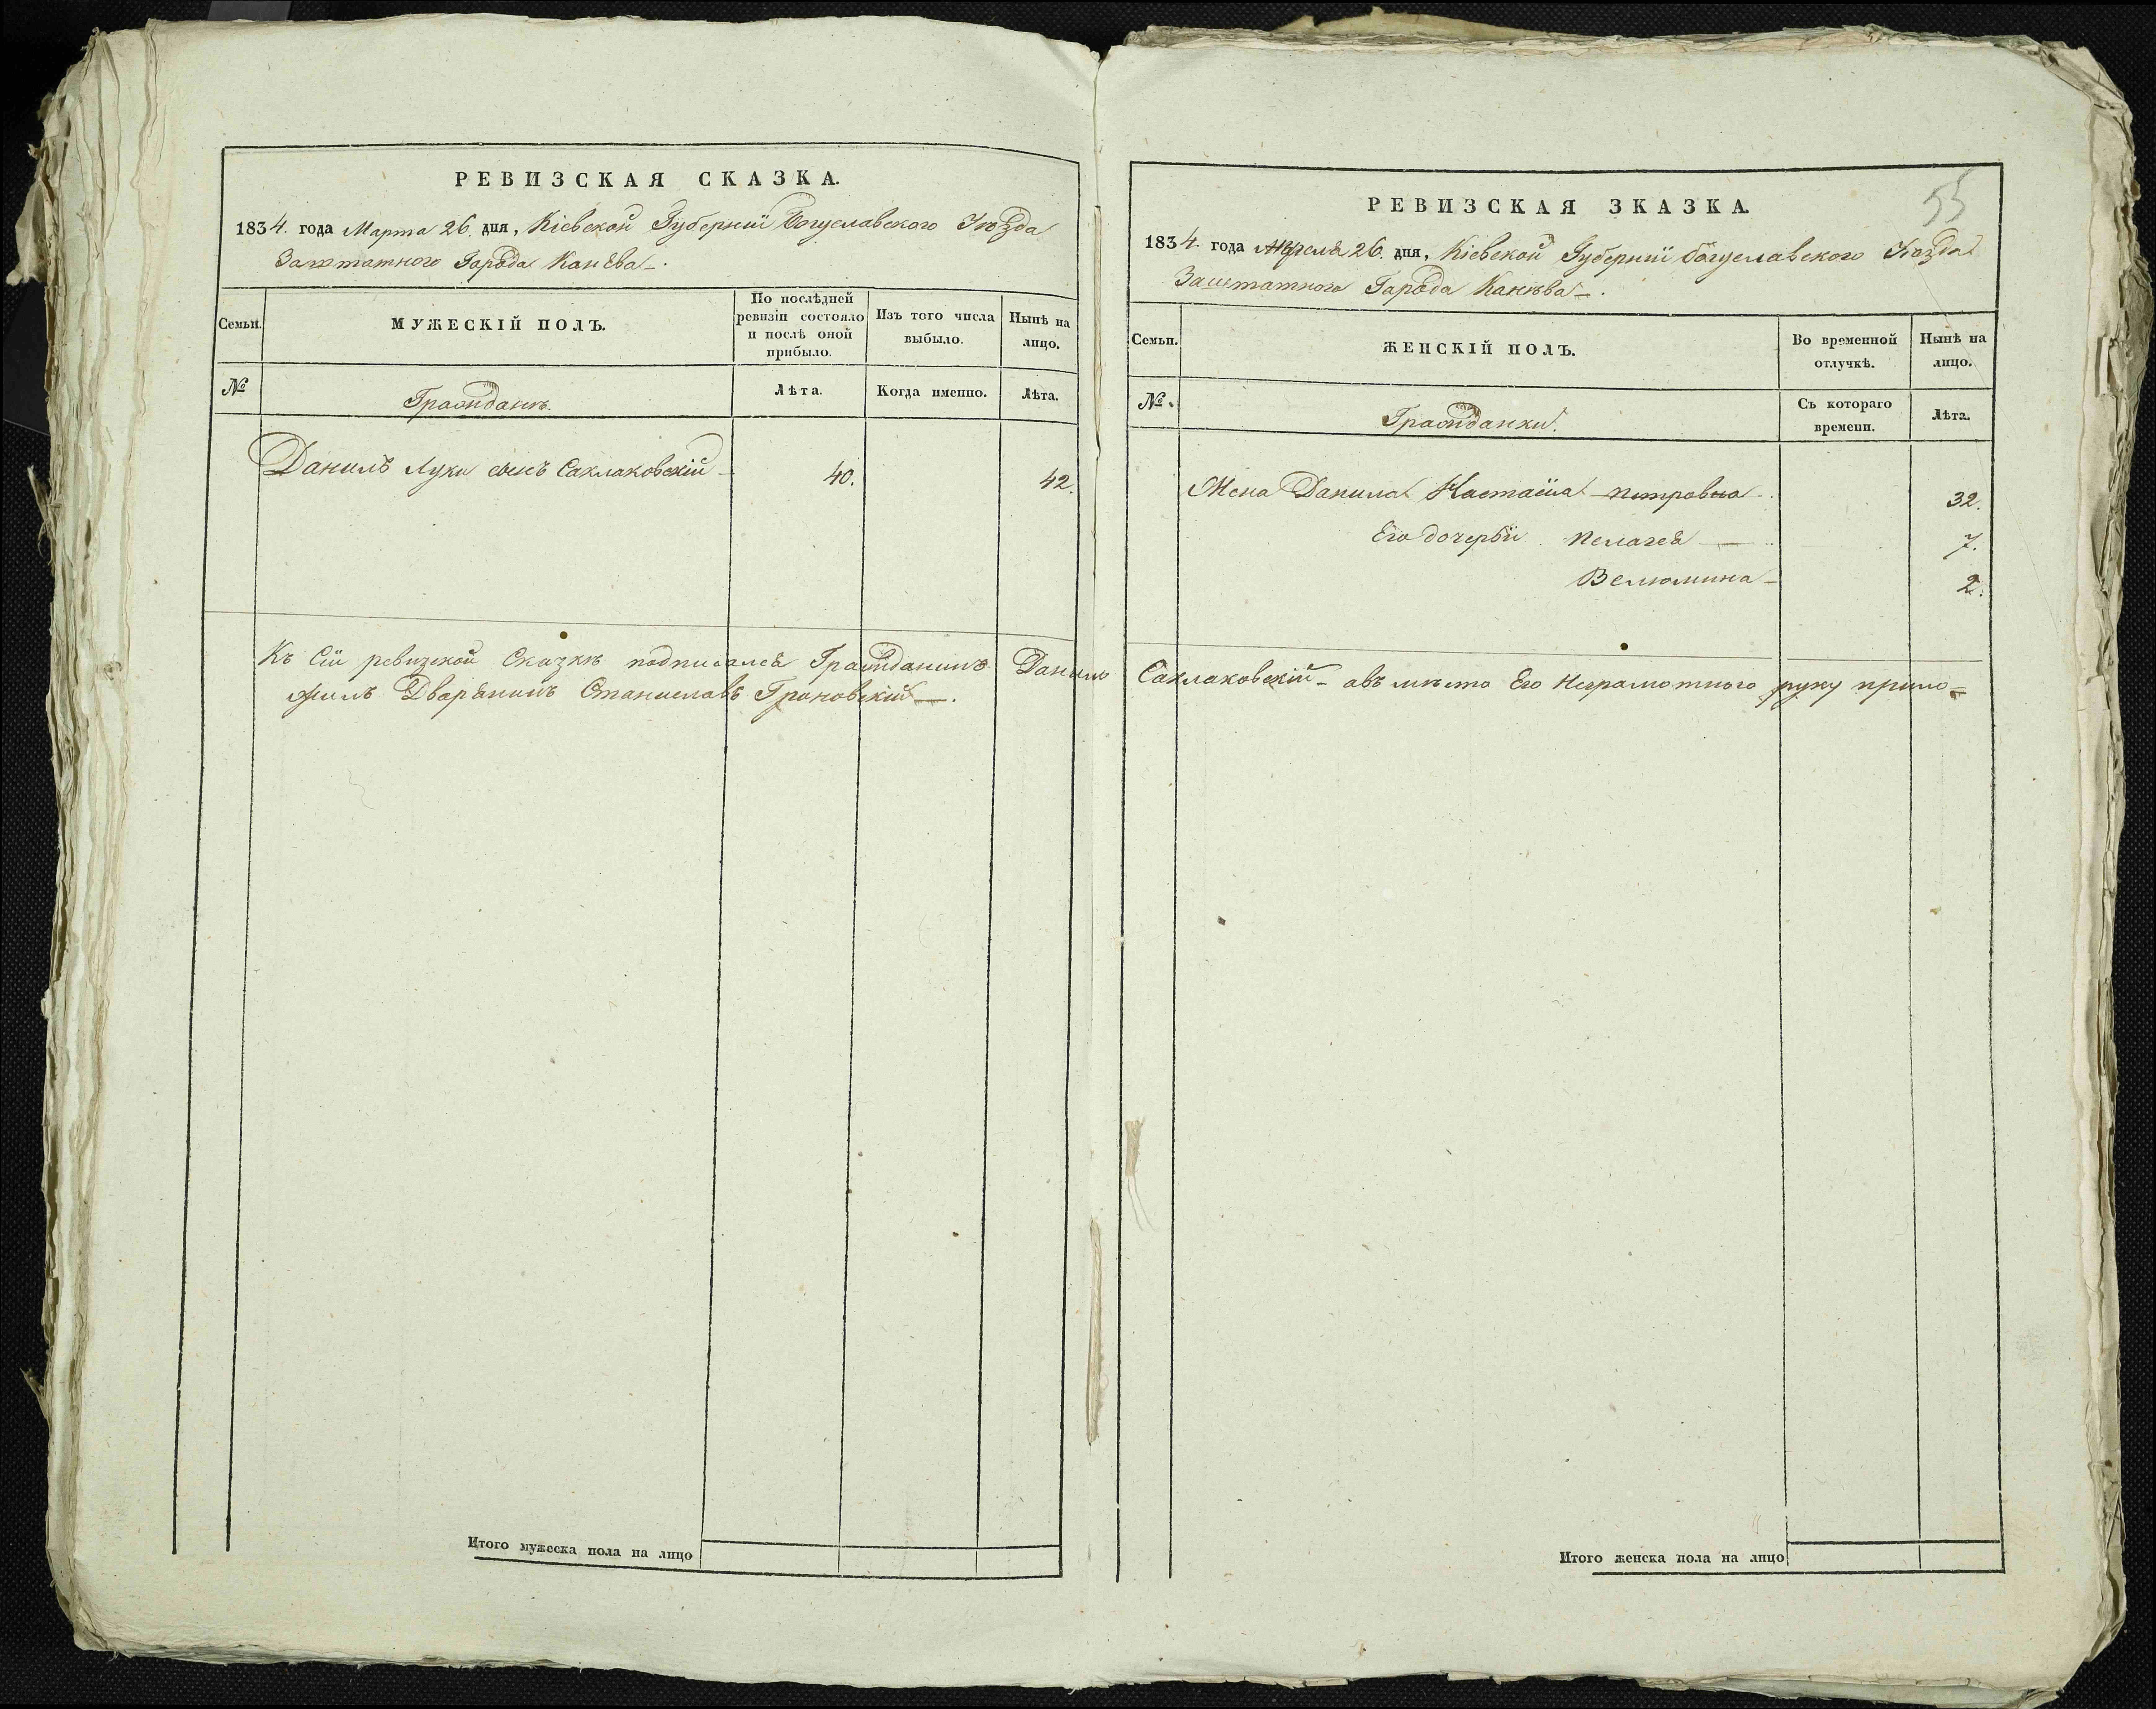 РЕВИЗСКАЯ СКАЗКА.
1834. года Марта 26. дня, Кіевской Губерніи Богуславского Уѣзда
Заштатного Города Канева.
Семьи.
МУЖЕСКІЙ ПОЛЪ.
По послѣдней ревизіи состояло и послѣ оной прибыло.
Изъ того числа выбыло.
Нынѣ на лицо.
№
Гражданѣ.
Лѣта.
Когда именно.
Лѣта.
Данилъ Луки сынъ Саклаковскій 40. 42.
Къ Сіи ревизской Сказкѣ подписался Гражданинъ Данило Саклаковскій – авъ мѣсто Его Неграмотного руку прило=
жилъ Дворянинъ Станиславъ Грановскій.
Итого мужеска пола на лицо
55
РЕВИЗСКАЯ ЗКАЗКА.
1834. года Апреля 26. дня, Кіевской Губерніи богуславского Уѣзда
Заштатного Города Канѣва.
Семьи.
ЖЕНСКІЙ ПОЛЪ.
Во временной отлучкѣ.
Нынѣ на лицо.
№.
Гражданки.
Съ котораго времени.
Лѣта.
Жена Данила Настасіа петровна 32.
Его дочерьи Пелагея 7.
Велюмина 2.
Итого женска пола на лицо